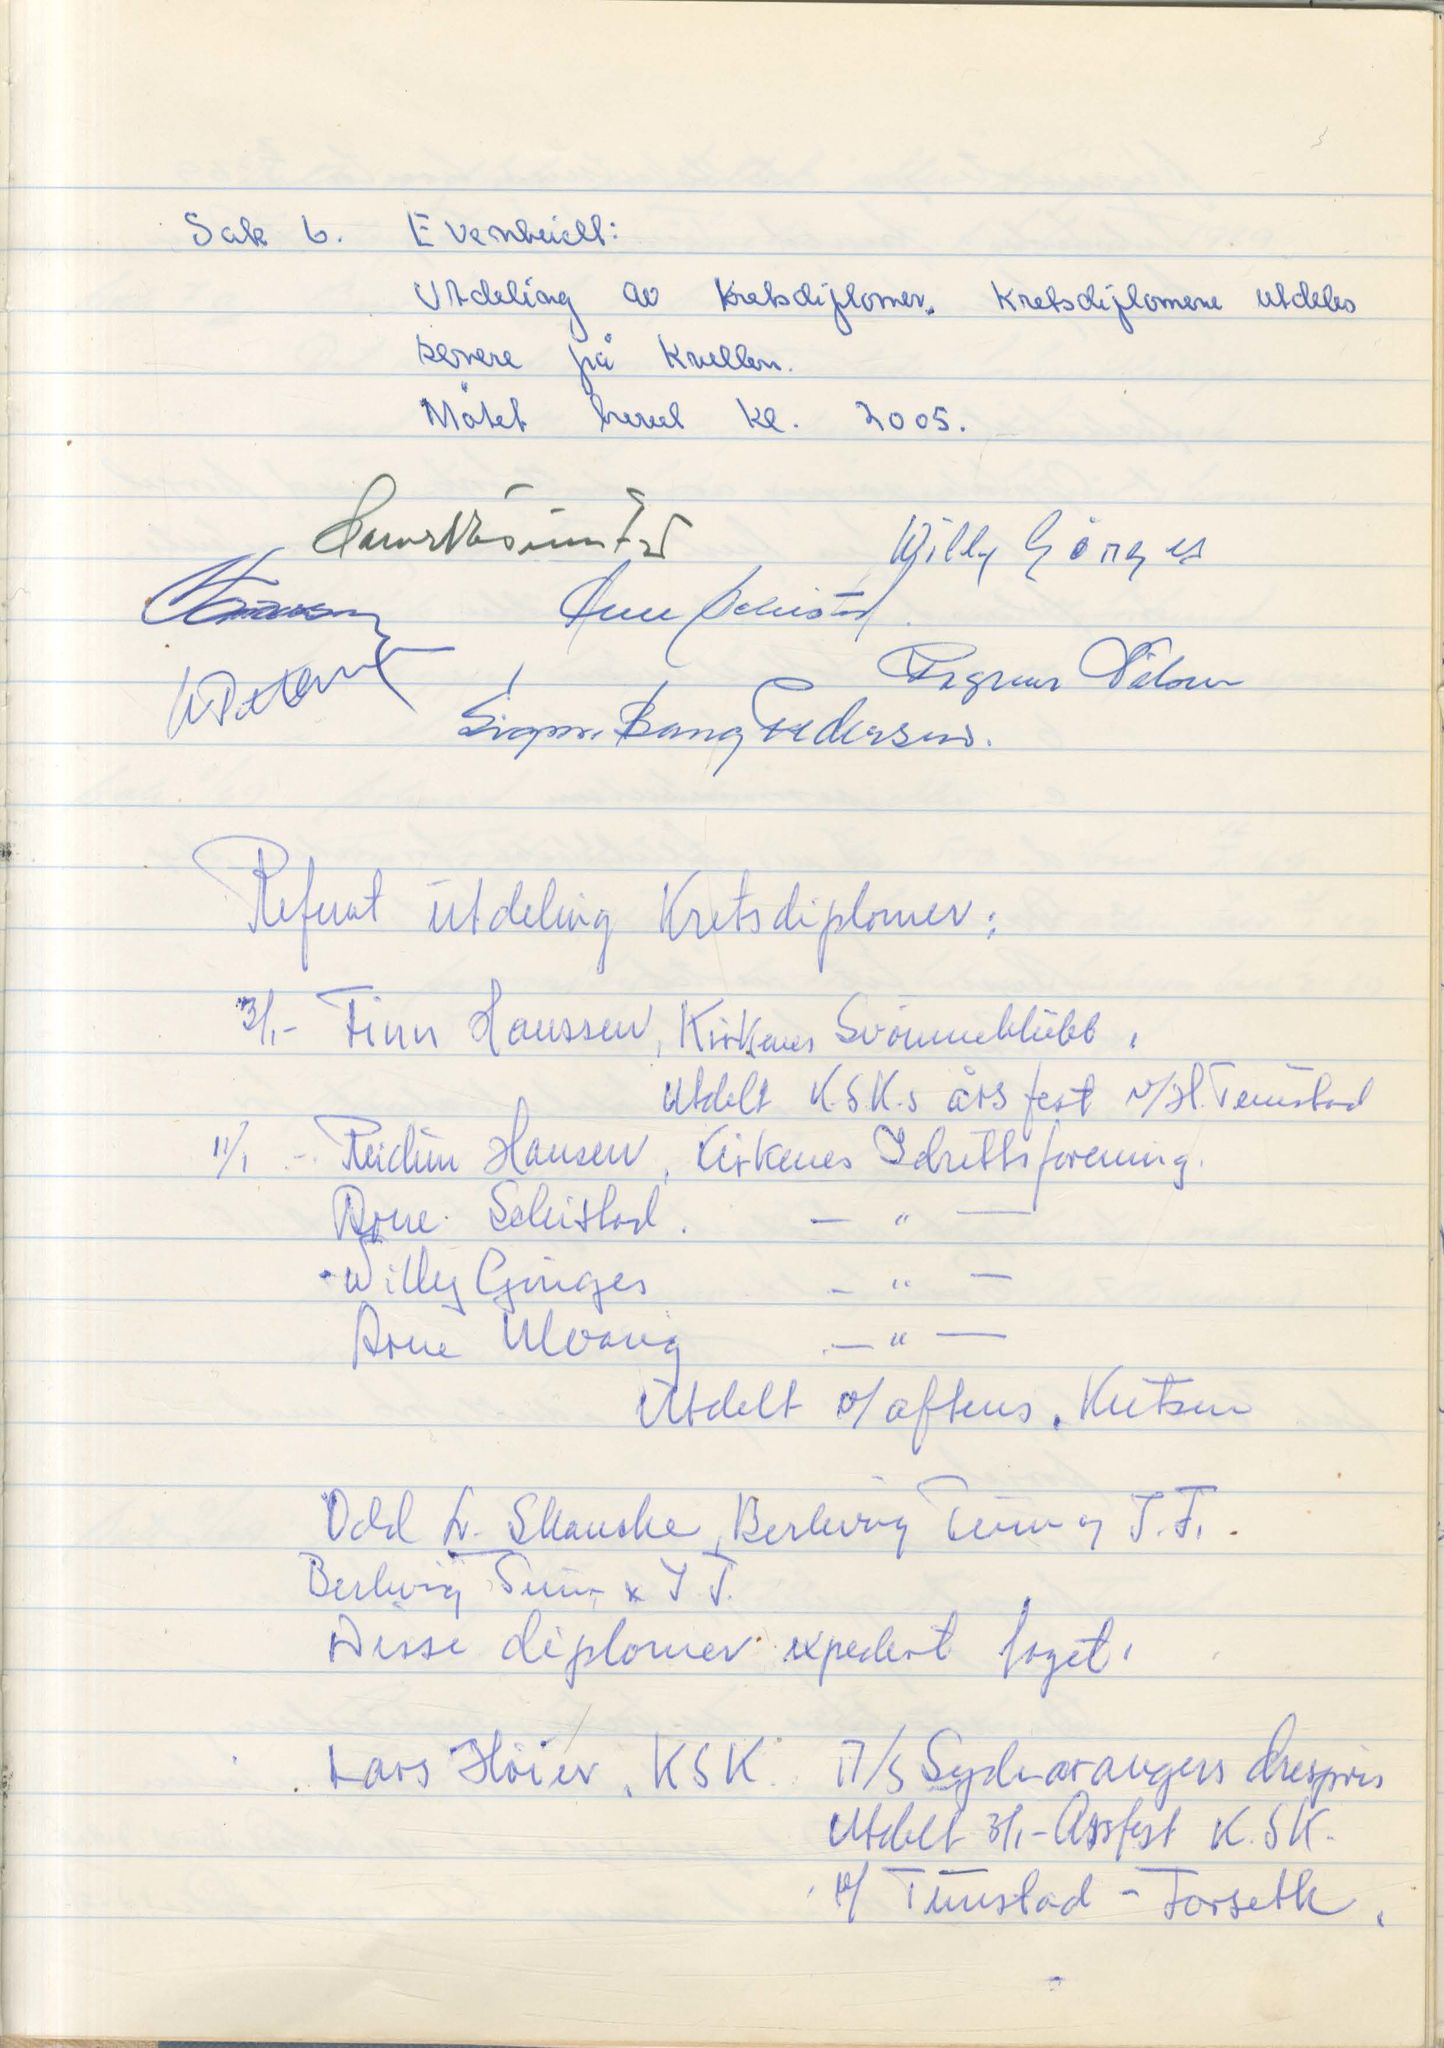 Sak 6. Eventuielt:
Utdeling av kretsdiplomer. Kretsdiplomene utdeles
senere på kvellen.
Møtet hevet kl. 2005.
Willy Gørges
Arne Schistad
Ragnar
Sigm. Bang Pedersen.
Referat utdeling Kretsdiplomer:
3/1- Finn Hanssen, Kirkenes Svømmeklubb.
Utdelt K.S.K.s årsfest v/H. Tunstad
11/1 - Reidun Hansen, Kirkenes Idrettsforening.
Arne Schistad. — " —
Willy Gørges — " —
Arne Ulvang — " —
Utdelt v/aftens,
Odd L. Skanske, Berlevåg Turn og I.F.
Berlevåg Turn x I F.
Disse diplomer expedert
Lars Høier, KSK. A/S Sydvarangers årespris
Utdelt 3/1- Årsfest K.S.K.
v/ Tunstad - Forseth.